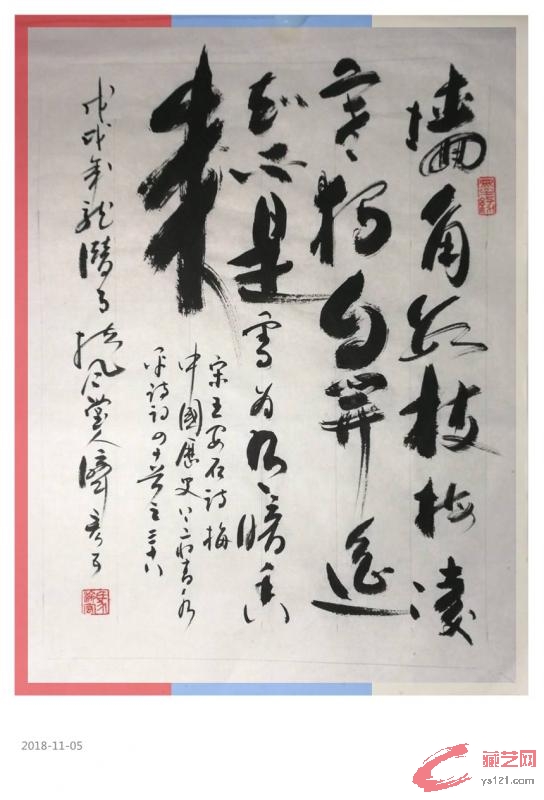 墙角数枝梅凌
寒独自开遥
知不是雪为有暗香
来
宋王安石诗梅
中國歷史上
诗词四十首之三十八
戊戌年龙潜月扶风堂人
2018-11-05
藏艺网
ys121.com